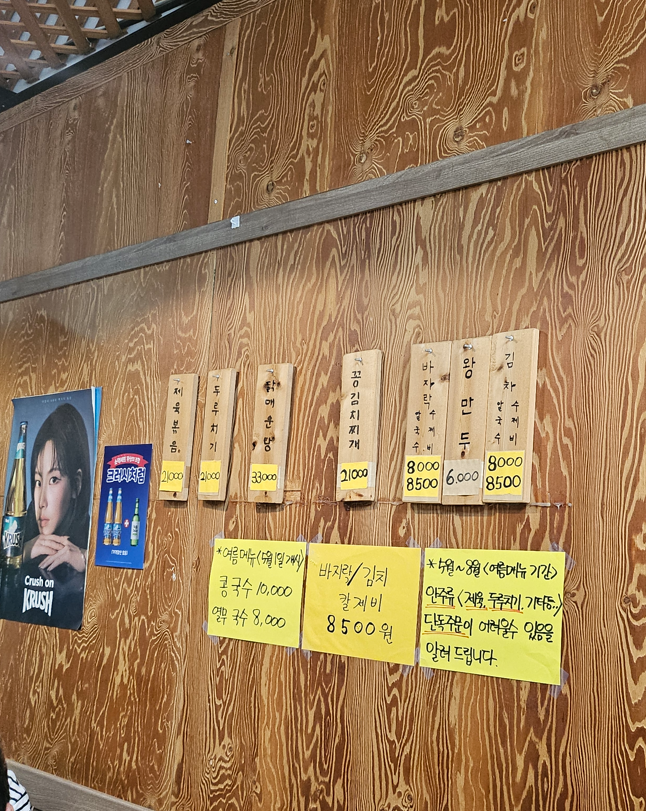 Crush on
KRUSH
크러시처럼
제육볶음
21000
두루치기
21000
닭매운탕
33000
꽁김치찌개
21000
바지락
칼국수
수제비
8000
8500
왕만두
6,000
김치
칼국수
수제비
8000
8500
*여름메뉴<5월1일 개시>
콩국수 10,000
열무 국수 8,000
바지락/김치
칼제비
8500원
*5월~8월<여름메뉴 기간>
안주류<제육, 두루치기, 기타등:>
단독주문이 어려울수 있음을
알려 드립니다.